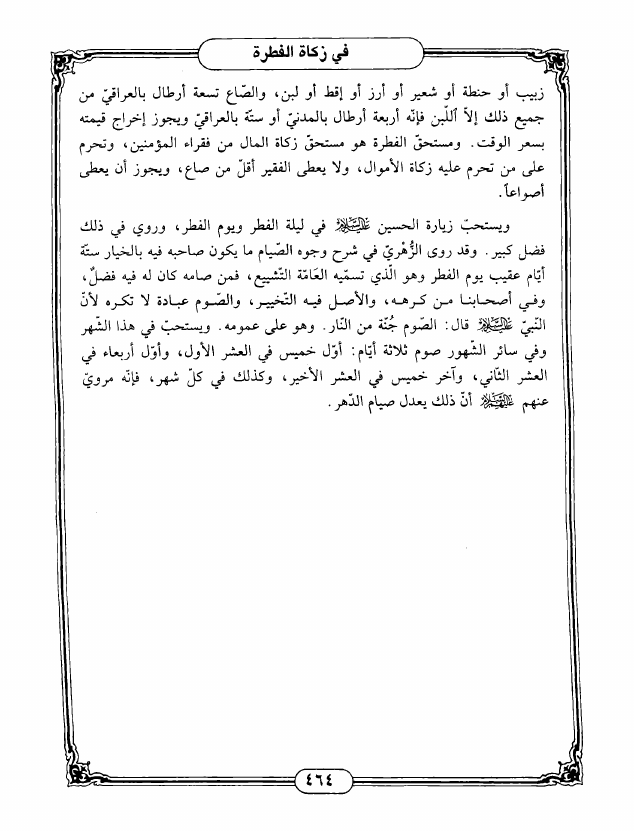 في زكاة الفطرة
زبيب أو حنطة أو شعير أو أرز أو إقط أو لبن، والصّاع تسعة أرطال بالعراقيّ من
جميع ذلك إلاّ ٱللّبن فإنّه أربعة أرطال بالمدنيّ أو ستّة بالعراقيّ ويجوز إخراج قيمته
بسعر الوقت. ومستحقّ الفطرة هو مستحقّ زكاة المال من فقراء المؤمنين، وتحرم
على من تحرم عليه زكاة الأموال، ولا يعطى الفقير أقلّ من صاع، ويجوز أن يعطى
أصواعاً.
ويستحبّ زيارة الحسين عليه السلام في ليلة الفطر ويوم الفطر، وروي في ذلك
فضل كبير. وقد روى الزُّهْريّ في شرح وجوه الصّيام ما يكون صاحبه فيه بالخيار ستّة
أيّام عقيب يوم الفطر وهو الّذي تسمّيه العَامّة التّشييع، فمن صامه كان له فيه فضلٌ،
وفي أصحابنا من كرهه، والأصل فيه التّخيير، والصّوم عبادة لا تكره لأنّ
النّبيّ عليه السلام قال: الصّوم جُنّة من النّار. وهو على عمومه. ويستحبّ في هذا الشّهر
وفي سائر الشّهور صوم ثلاثة أيّام: أوّل خميس في العشر الأول، وأوّل أربعاء في
العشر الثّاني، وآخر خميس في العشر الأخير، وكذلك في كلّ شهر، فإنّه مرويّ
عنهم عليهم السلام أنّ ذلك يعدل صيام الدّهر.
٤٦٤